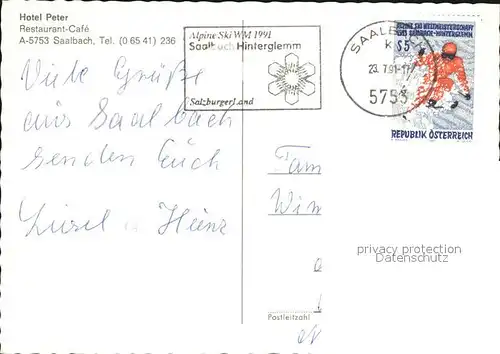 Hotel Peter
Restaurant-Café
A-5753 Saalbach, Tel. (0 65 41) 236
Alpine Ski WM 1991
Saalbach Hinterglemm
SalzburgerLand
SAALBACH
23. 7. 91-17
5753
ALPINE SKI WELTMEISTERSCHAFT
1991 SAALBACH-HINTERGLEMM
S5
REPUBLIK ÖSTERREICH
Viele Grüße
aus Saalbach
senden Euch
Liesel u. Heinz
Fam
Wim
privacy protection
Datenschutz
Postleitzahl